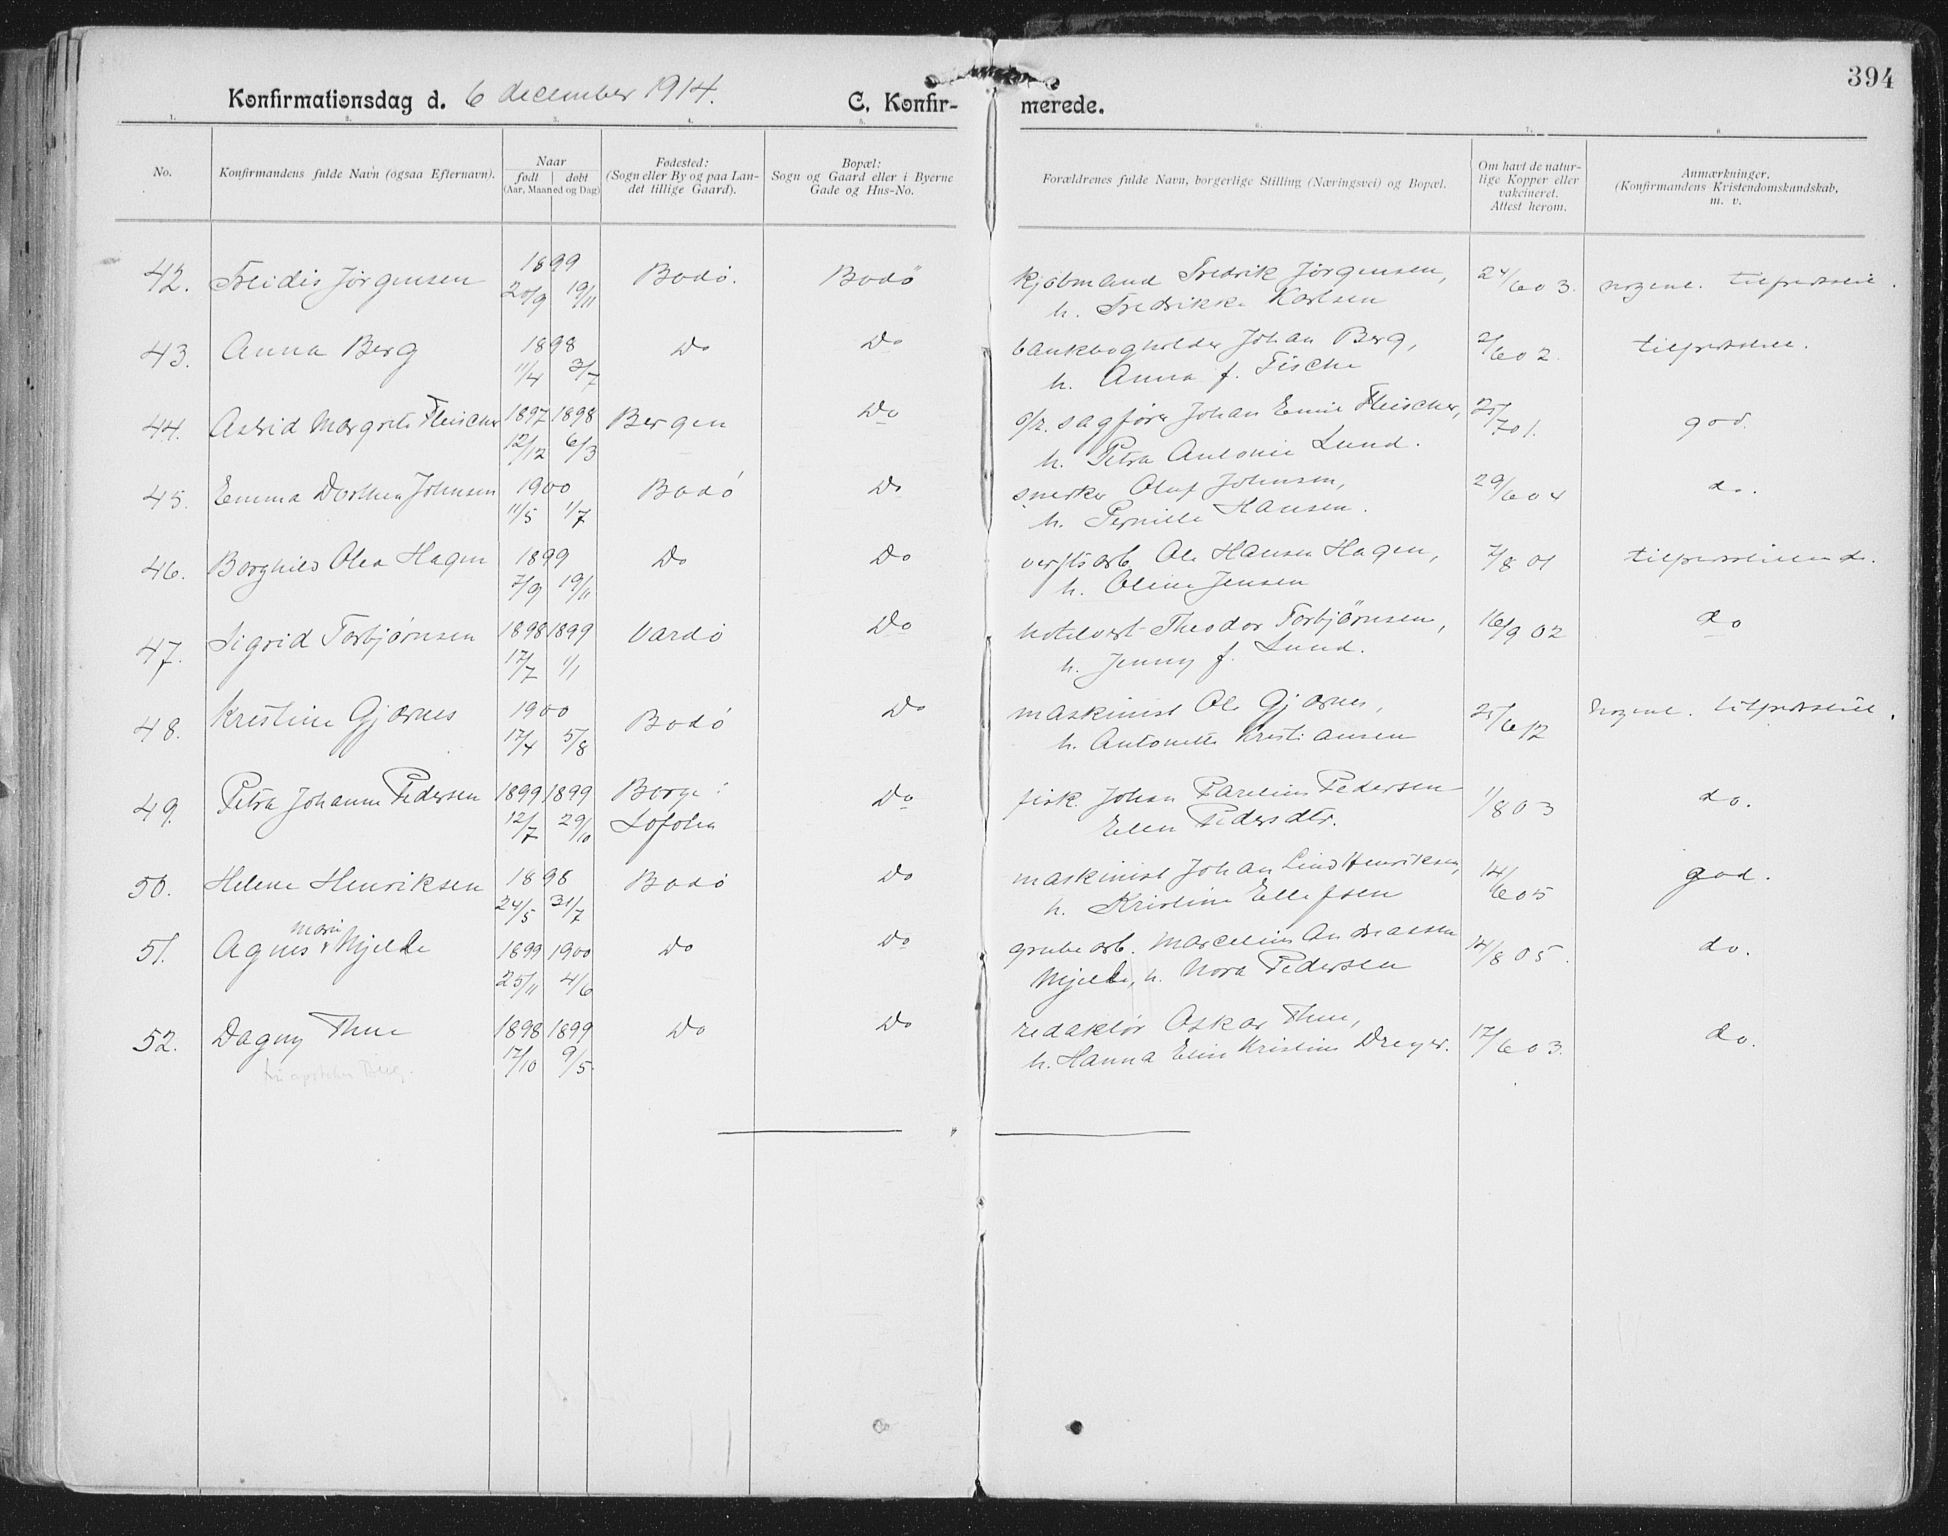 394
Konfirmationsdag d. 6 december 1914.
C. Konfir-
merede.
1. 2. 3. 4. 5. 6. 7. 8.
No.
Konfirmandens fulde Navn (ogsaa Efternavn).
Naar
født døbt
(Aar, Maaned og Dag)
Fødested:
(Sogn eller By og paa Lan-
det tillige Gaard).
Bopæl:
Sogn og Gaard eller i Byerne
Gade og Hus-No.
Forældrenes fulde Navn, borgerlige Stilling (Næringsvei) og Bopæl.
Om havt de natur-
lige Kopper eller
vakcineret.
Attest herom.
Anmærkninger.
(Konfirmandens Kristendomskundskab,
m. v.
42. Freidis Jørgensen 1899 Bodø. Bodö kjøbmand Fredrik Jörgensen, 24/6 03.
20/9 19/11 h. Fredrikke Karlsen
43. Anna Berg 1898 Do Do bankbogholder Johan Berg, 2/6 02.
11/4 3/7 h. Anna f.
44. Astrid Margrete Fleischer 1897 1898 Bergen Do o/r. sagfører Johan Emil Fleischer, 25/7 01. god.
12/12 6/3 h. Petra Antonie Lund.
45. Emma Dorthea Johnsen 1900 Bodö Do snerker Oluf Johnsen, 29/6 04 do.
11/5 1/7 h. Pernille Hansen.
46. Borghild Olea Hagen 1899 Do Do verftsarb. Ole Hansen Hagen, 7/8 01
7/9 19/11 h. Oline Jensen
47. Sigrid Torbjørnsen 1898 1899 Vardø Do hotelvert Theodor Torbjörnsen, 16/9 02 do
17/7 1/1 h. Jenny f. Lund.
48. Kristine Gjærnes 1900 Bodö Do maskinist Ole Gjærnes, 25/6 12
17/4 5/8 h. Antonette Kristiansen
49. Petra Johanne Pedersen 1899 1899 Borge i Do fisk. Johan Parelius Pedersen 1/8 03 do.
12/7 29/10 Lofoten Elen Pedersdtr.
50. Helene Henriksen 1898 Bodö Do maskinist Johan Lind Henriksen, 14/6 05 god.
24/5 31/7 h. Kristine Ellefsen
Marie
51. Agnes Mjelde 1899 1900 Do Do grubearb. Marcelius Andreassen 14/8 05. do.
25/11 4/6 Mjelde, h. Nora Pedersen
52. Dagny Thue 1898 1899 Do Do redaktör Oskar Thue, 17/6 03. do.
17/10 9/5 h. Hanna Elin Kristine Dreyer.